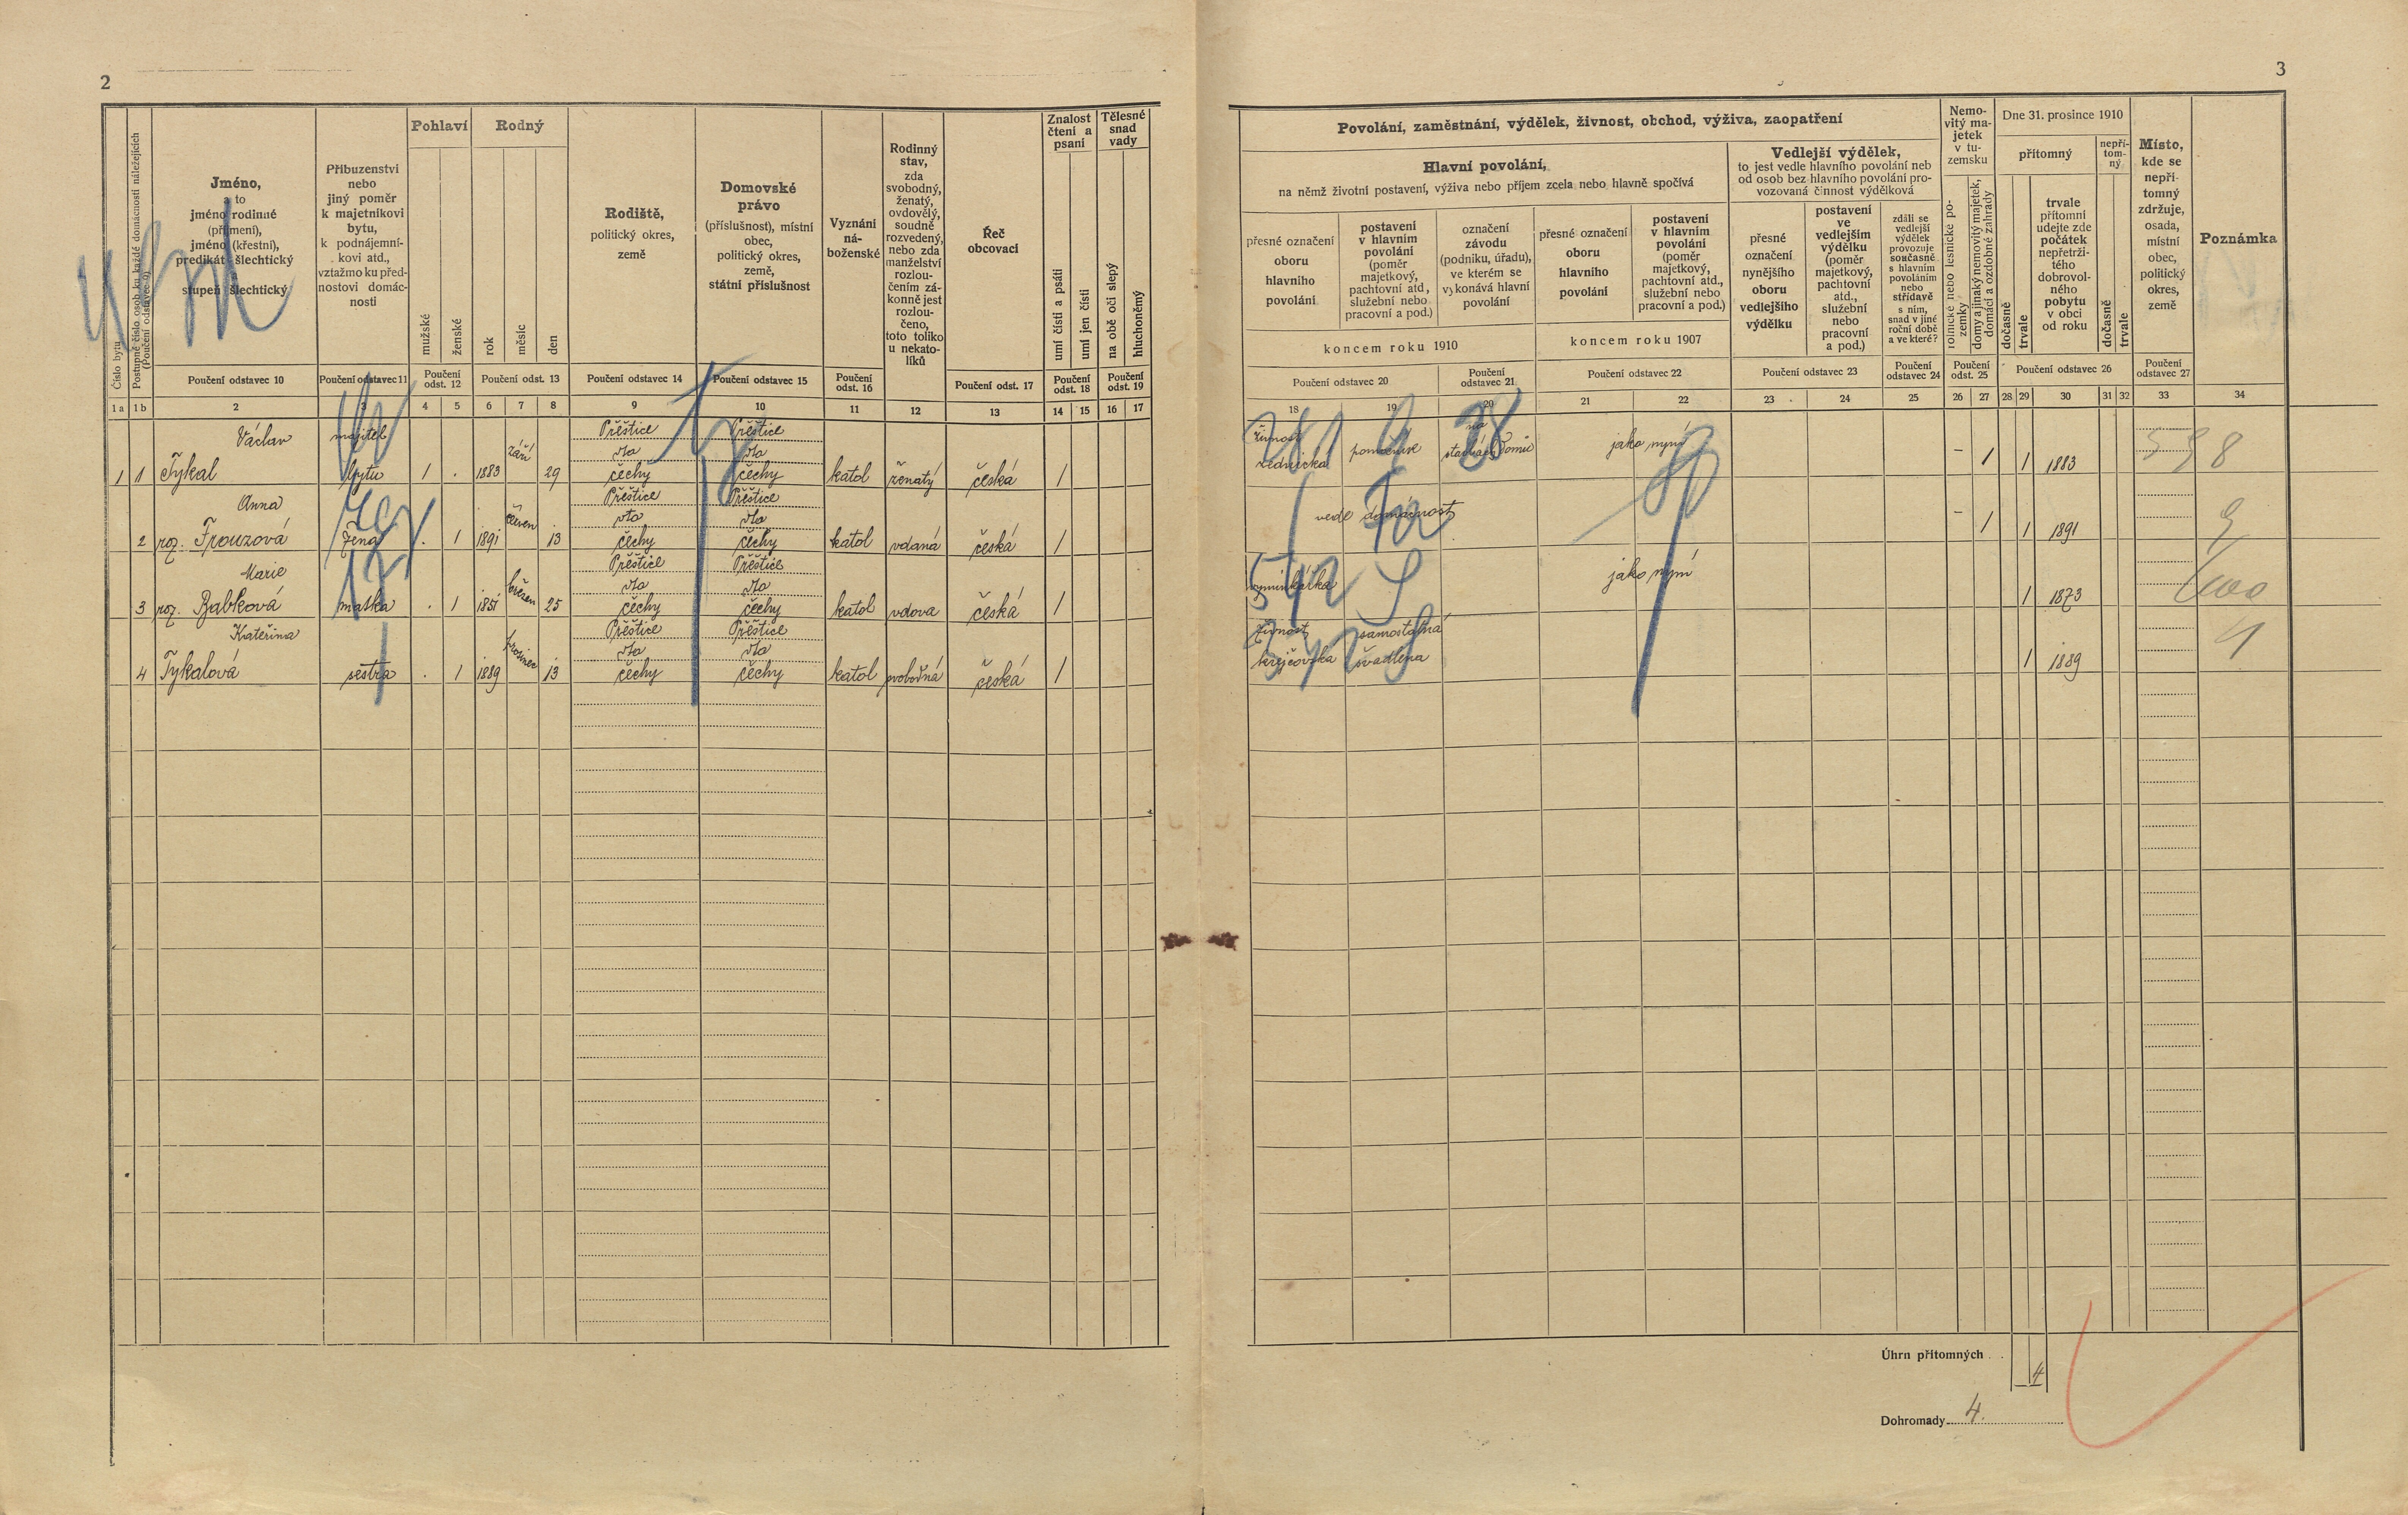 2
Číslo bytu
Postupné číslo osob ku každé domácnosti náležejících
(Poučení odstavec 9)
Jméno,
a to
jméno rodinné
(příjmení),
jméno (křestní),
predikát šlechtický
a
stupeň šlechtický
Příbuzenství
nebo
jiný poměr
k majetníkovi
bytu,
k podnájemní-
kovi atd.,
vztažmo ku před-
nostovi domác-
nosti
Pohlaví
mužské
ženské
Rodný
rok
měsíc
den
Rodiště,
politický okres,
země
Domovské
právo
(příslušnost), místní
obec,
politický okres,
země,
státní příslušnost
Vyznání
ná-
boženské
Rodinný
stav,
zda
svobodný,
ženatý,
ovdovělý,
soudně
rozvedený,
nebo zda
manželství
rozlou-
čením zá-
konně jest
rozlou-
čeno,
toto toliko
u nekato-
líků
Řeč
obcovací
Znalost
čtení a
psaní
umí čísti a psáti
umí jen čísti
Tělesné
snad
vady
na obě oči slepý
hluchoněmý
Poučení odstavec 10
Poučení odstavec 11
Poučení odst. 12
Poučení odst. 13
Poučení odstavec 14
Poučení odstavec 15
Poučení odst. 16
Poučení odst. 17
Poučení odst. 18
Poučení odst. 19
1 a 1 b 2 3 4 5 6 7 8 9 10 11 12 13 14 15 16 17
Václav majitel září Přeštice Přeštice
dto dto
1 1 Tykal bytu 1 . 1883 29 čechy čechy katol ženatý česká 1
Anna červen Přeštice Přeštice
dto dto
2 roz. Frouzová žena . 1 1891 13 čechy čechy katol vdaná česká 1
Marie březen Přeštice Přeštice
dto dto
3 roz. Babková matka . 1 1851 25 čechy čechy katol vdova česká 1
Kateřina prosinec Přeštice Přeštice
dto dto
4 Tykalová sestra . 1 1889 13 čechy čechy katol svobodná česká 1
3
Povolání, zaměstnání, výdělek, živnost, obchod, výživa, zaopatření
Hlavní povolání,
na němž životní postavení, výživa nebo příjem zcela nebo hlavně spočívá
přesné označení
oboru
hlavního
povolání
postavení
v hlavním
povolání
(poměr
majetkový,
pachtovní atd.,
služební nebo
pracovní a pod.)
označení
závodu
(podniku, úřadu),
ve kterém se
vykonává hlavní
povolání
koncem roku 1910
přesné označení
oboru
hlavního
povolání
postavení
v hlavním
povolání
(poměr
majetkový,
pachtovní atd.,
služební nebo
pracovní a pod.)
koncem roku 1907
Vedlejší výdělek,
to jest vedle hlavního povolání neb
od osob bez hlavního povolání pro-
vozovaná činnost výdělková
přesné
označení
nynějšího
oboru
vedlejšího
výdělku
postavení
ve
vedlejším
výdělku
(poměr
majetkový,
pachtovní
atd.,
služební
nebo
pracovní
a pod.)
zdali se
vedlejší
výdělek
provozuje
současně
s hlavním
povoláním
nebo
střídavě
s ním,
snad v jiné
roční době
a ve které?
Nemo-
vitý ma-
jetek
v tu-
zemsku
rolnické nebo lesnické po-
zemky
domy a jinaký nemovitý majetek,
domácí a ozdobné zahrady
Dne 31. prosince 1910
přítomný
dočasně
trvale
trvale
přítomní
udejte zde
počátek
nepřetrži-
tého
dobrovol-
ného
pobytu
v obci
od roku
nepří-
tom-
ný
dočasně
trvale
Místo,
kde se
nepří-
tomný
zdržuje,
osada,
místní
obec,
politický
okres,
země
Poznámka
Poučení odstavec 20
Poučení odstavec 21
Poučení odstavec 22
Poučení odstavec 23
Poučení odstavec 24
Poučení odst. 25
Poučení odstavec 26
Poučení odstavec 27
18 19 20 21 22 23 24 25 26 27 28 29 30 31 32 33 34
živnost na jako nyní
zednická stavbách domů – 1 1 1883
vede domácnost – 1 1 1891
jako nyní
1 1873
živnost samostatná
krejčovská švadlena 1 1889
Úhrn přítomných . . 4
Dohromady 4.